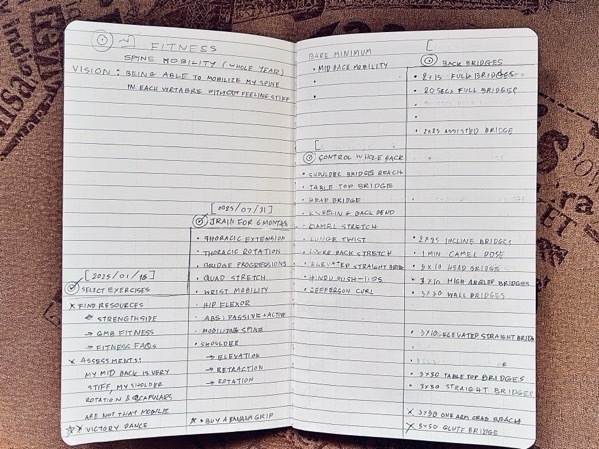 FITNESS
SPINE MOBILITY (WHOLE YEAR)
VISION: BEING ABLE TO MOBILIZE MY SPINE
IN EACH VERTABRE WITHOUT FEELING STIFF
[2025/01/15]
SELECT EXERCISES
× FIND RESOURCES
→ STRENGTHSIDE
→ GMB FITNESS
→ FITNESS FAQs
× ASSESSMENTS:
MY MID BACK IS VERY
STIFF, MY SHOLDER
ROTATION & SCAPULARS
ARE NOT THAT MOBILE
VICTORY DANCE
[2025/07/31]
TRAIN FOR 6 MONTHS
• THORACIC EXTENSION
• THORACIC ROTATION
• BRIDGE PROGRESSIONS
• QUAD STRETCH
• WRIST MOBILITY
• HIP FLEXOR
• ABS: PASSIVE + ACTIVE
• MOBILIZING SPINE
• SHOULDER
→ ELEVATION
→ RETRACTION
→ ROTATION
• BUY A BANANA GRIP
BARE MINIMUM
• MID BACK MOBILITY
[
CONTROL WHOLE BACK
• SHOULDER BRIDGES REACH
• TABLE TOP BRIDGE
• HEAD BRIDGE
• KNEELING BACK BEND
• CAMEL STRETCH
• LUNGE TWIST
• LOWER BACK STRETCH
• ELEVATED STRAIGHT BRIDGE
• HINDU PUSH-UPS
• JEFFERSON CURL
[
BACK BRIDGES
• 2×15 FULL BRIDGES
• 20 SECS FULL BRIDGES
• 2×25 ASSISTED BRIDGE
• 2×25 INCLINE BRIDGES
• 1 MIN CAMEL POSE
• 3×10 HEAD BRIDGES
• 3×10 HIGH ANGLED BRIDGES
• 3×30 WALL BRIDGES
• 3×10 ELEVATED STRAIGHT
• 3×30 TABLE TOP BRIDGES
• 3×30 STRAIGHT BRIDGES
× 3×30 ONE ARM
× 3×50 GLUTE BRIDGE